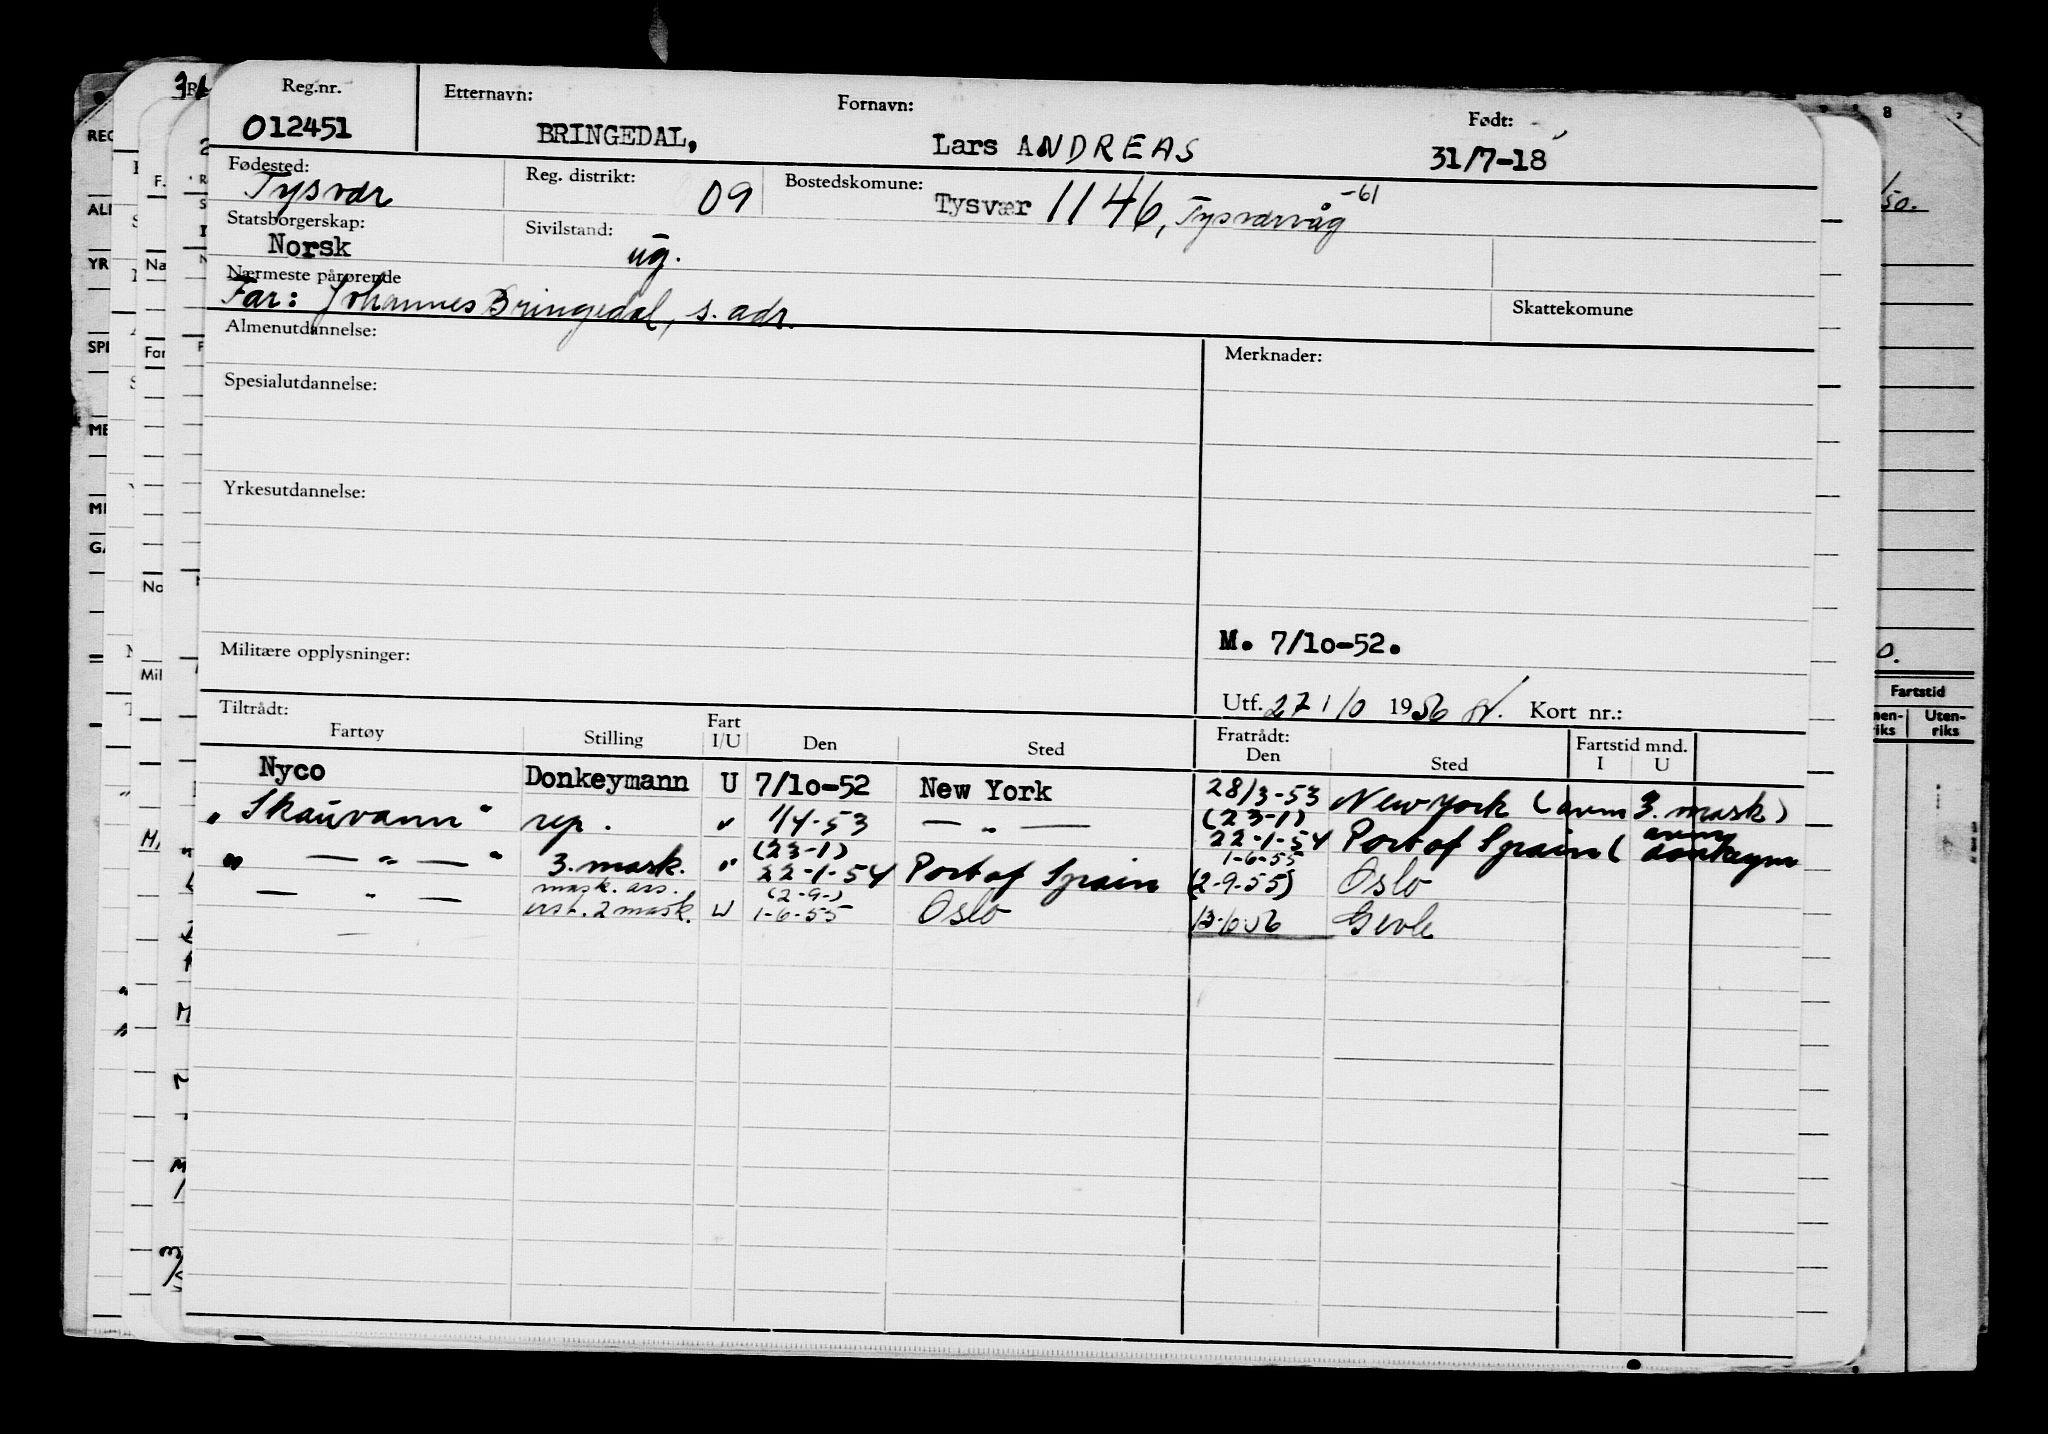 Reg.nr. Etternavn: Fornavn: Født:
012451 BRINGEDAL, Lars ANDREAS 31/7-18
Fødested: Reg. distrikt: Bostedskomune:
Tysvær 09 Tysvær 1146, Tysværvåg -61
Statsborgerskap: Sivilstand:
Norsk ug.
Nærmeste pårørende Skattekomune
Far: Johannes Bringedal, s. adr.
Almenutdannelse: Merknader:
Spesialutdannelse:
Yrkesutdannelse:
M. 7/10-52.
Militære opplysninger:
Utf. 27 1/0 1956 Kort nr.:
Tiltrådt: Fratrådt:
Fartøy Stilling Fart I/U Den Sted Den Sted Fartstid mnd. I U
Nyco Donkeymann U 7/10-52 New York 28/3-53 New York (avm 3. mask)
"Skauvann" rep. " 1/4-53 — " — (23-1) 22-1-54 Port of Spain (
" — " — " 3. mask. " (23-1) 22-1-54 Port of Spain 1-6-55 (2-9-55) Oslo
— " — mask. ass. 2 mask. U (2-9-) 1-6-55 Oslo 13-10-56 Gevle
Fartstid
Uten-
riks